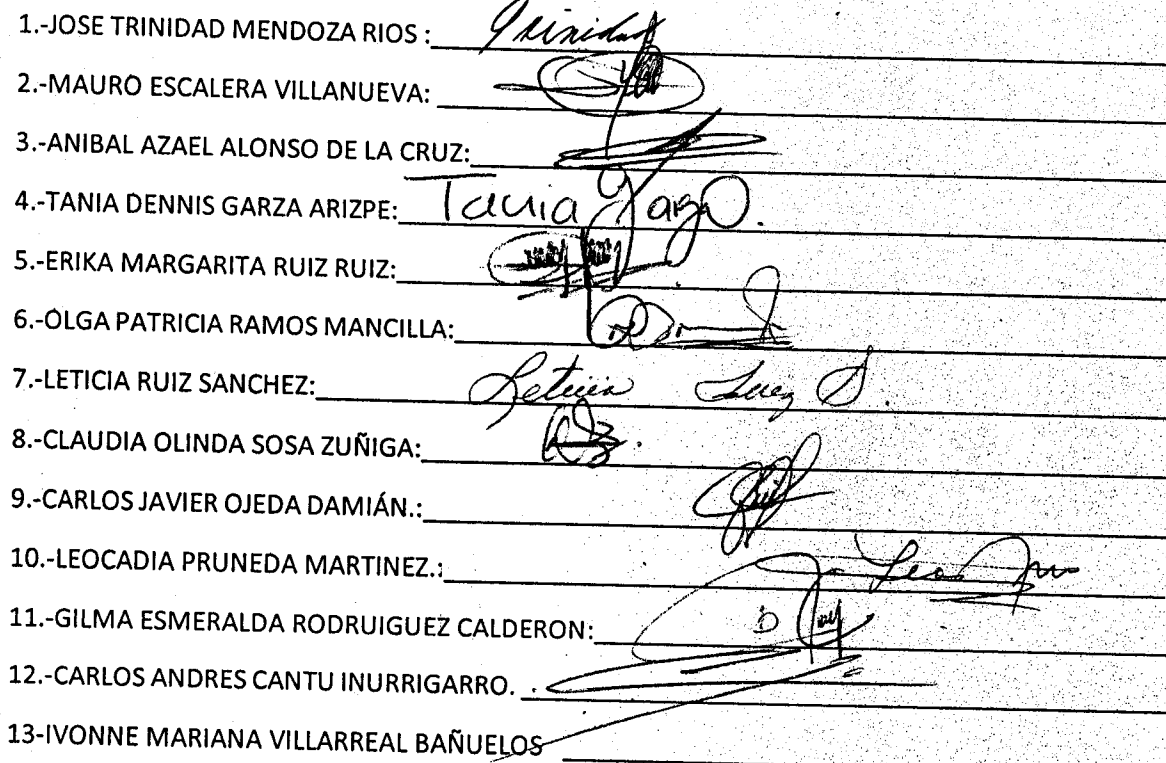 1.-JOSE TRINIDAD MENDOZA RIOS : Trinidad
2.-MAURO ESCALERA VILLANUEVA:
3.-ANIBAL AZAEL ALONSO DE LA CRUZ:
4.-TANIA DENNIS GARZA ARIZPE: Tania Garza.
5.-ERIKA MARGARITA RUIZ RUIZ:
6.-OLGA PATRICIA RAMOS MANCILLA:
7.-LETICIA RUIZ SANCHEZ: Leticia Ruiz S.
8.-CLAUDIA OLINDA SOSA ZUÑIGA:
9.-CARLOS JAVIER OJEDA DAMIÁN.:
10.-LEOCADIA PRUNEDA MARTINEZ.:
11.-GILMA ESMERALDA RODRUIGUEZ CALDERON:
12.-CARLOS ANDRES CANTU INURRIGARRO.
13-IVONNE MARIANA VILLARREAL BAÑUELOS